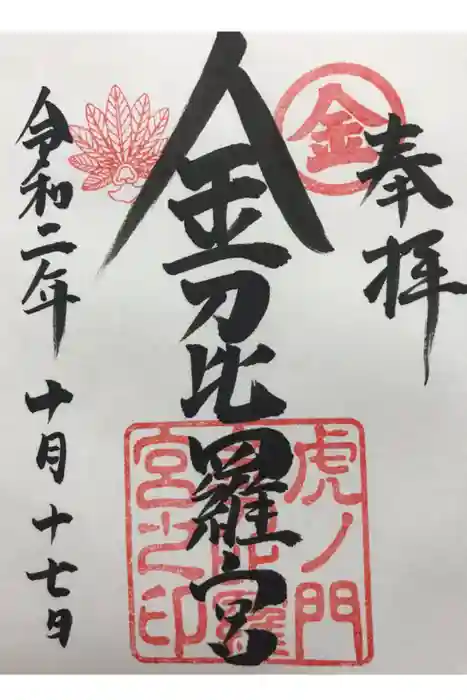 奉拝
金
金刀比羅宮
虎ノ門
金刀比羅
宮之印
令和二年 十月十七日